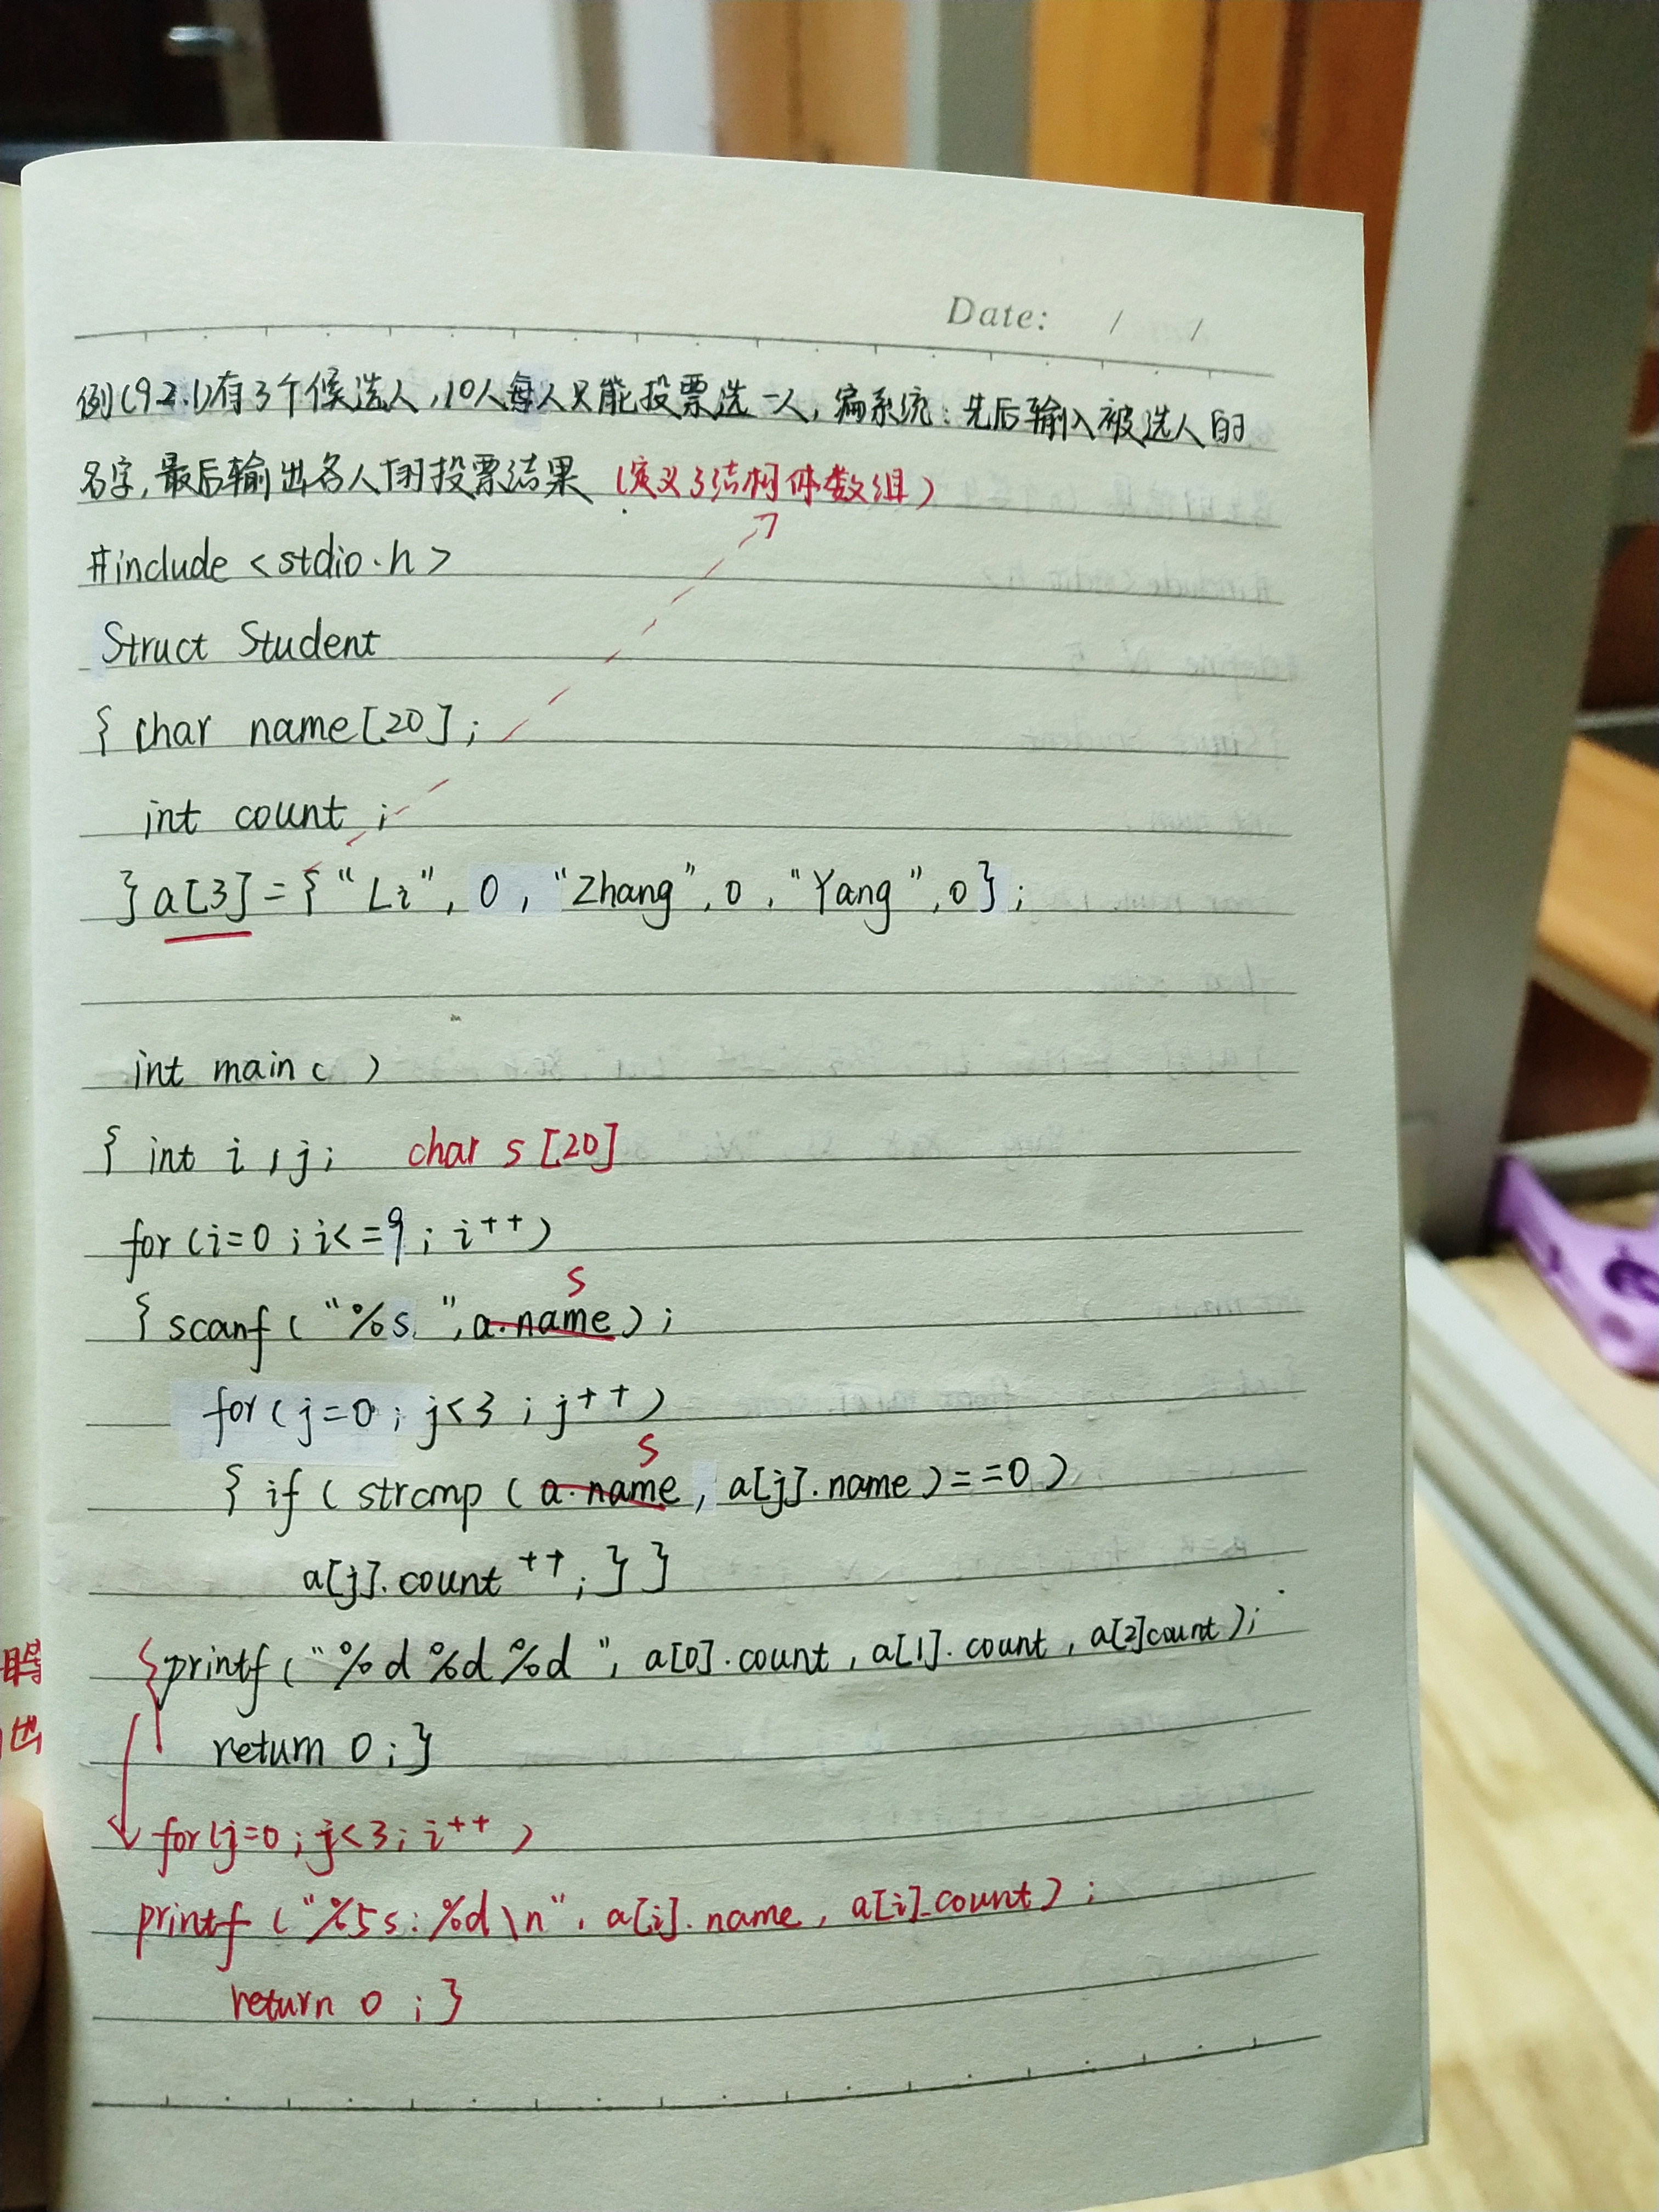 Date: / /
例(9.2.1)有3个候选人,10人每人只能投票选一人,编系统:先后输入被选人的
名字,最后输出各人的投票结果 (定义了结构体数组)
#include <stdio.h>
Struct Student
{ char name[20];
int count ;
} a[3] = { "Li", 0, "Zhang", 0, "Yang", 0 };
int main ( )
{ int i, j; char s [20]
for (i=0 ; i<=9 ; i++)
s
{ scanf ( "%s ", a.name ) ;
for ( j=0 ; j<3 ; j++ )
s
{ if ( strcmp ( a.name , a[j].name ) ==0 )
a[j].count ++ ; } }
{ printf ( "%d %d %d ", a[0].count , a[1].count , a[2]count ) ;
return 0 ; }
for (j=0 ; j<3 ; i++ )
printf ( "%5s: %d \n" , a[i].name , a[i].count ) ;
return 0 ; }
出